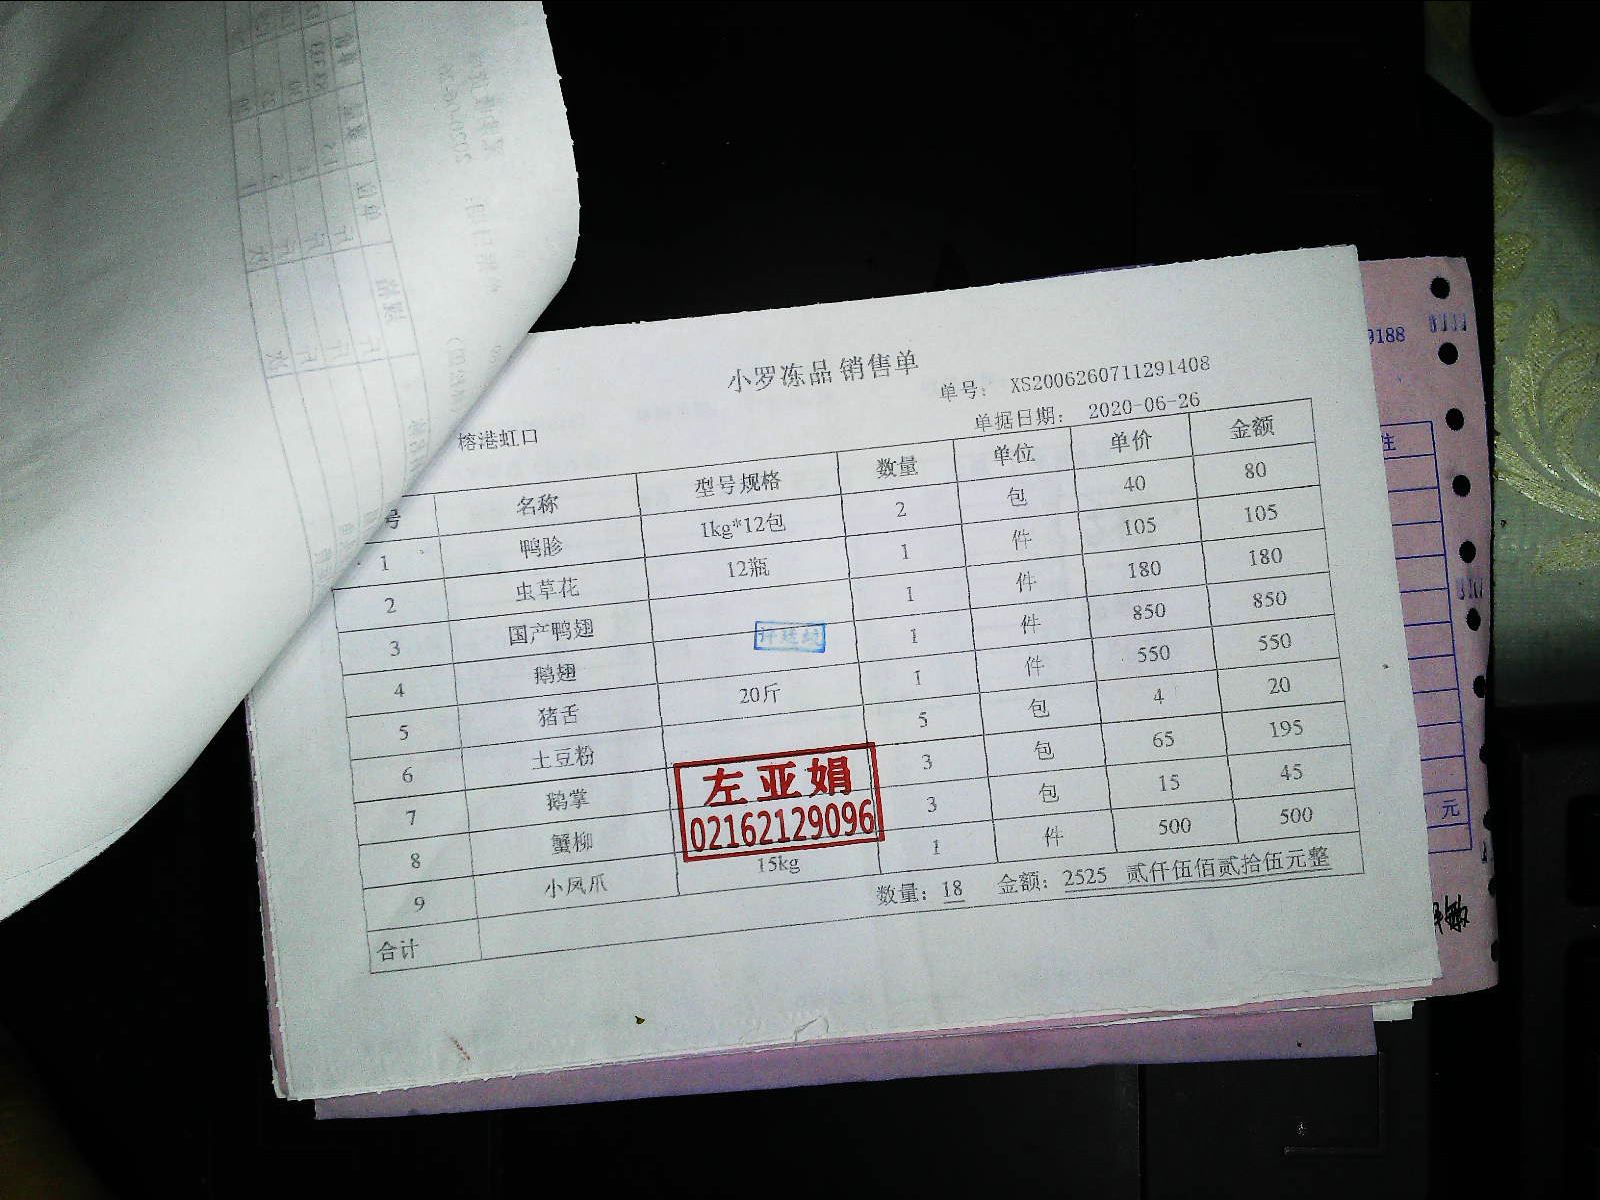 小罗冻品 销售单
单号： XS2006260711291408
榕港虹口
单据日期： 2020-06-26
号 名称 型号规格 数量 单位 单价 金额
1 鸭胗 1kg*12包 2 包 40 80
2 虫草花 12瓶 1 件 105 105
3 国产鸭翅 1 件 180 180
4 鹅翅 1 件 850 850
5 猪舌 20斤 1 件 550 550
6 土豆粉 5 包 4 20
7 鹅掌 3 包 65 195
8 蟹柳 3 包 15 45
9 小凤爪 15kg 1 件 500 500
合计 数量：18 金额：2525 贰仟伍佰贰拾伍元整
左亚娟
02162129096
9188
注
元